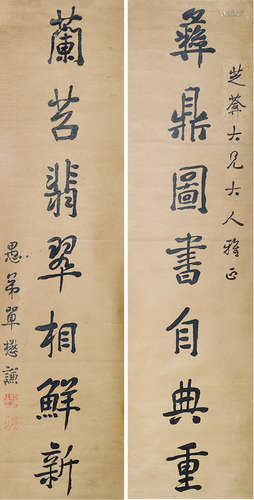 芝莽大兄大人雅正
彝鼎圖書自典重
蘭苕翡翠相鮮新
愚弟單懋謙